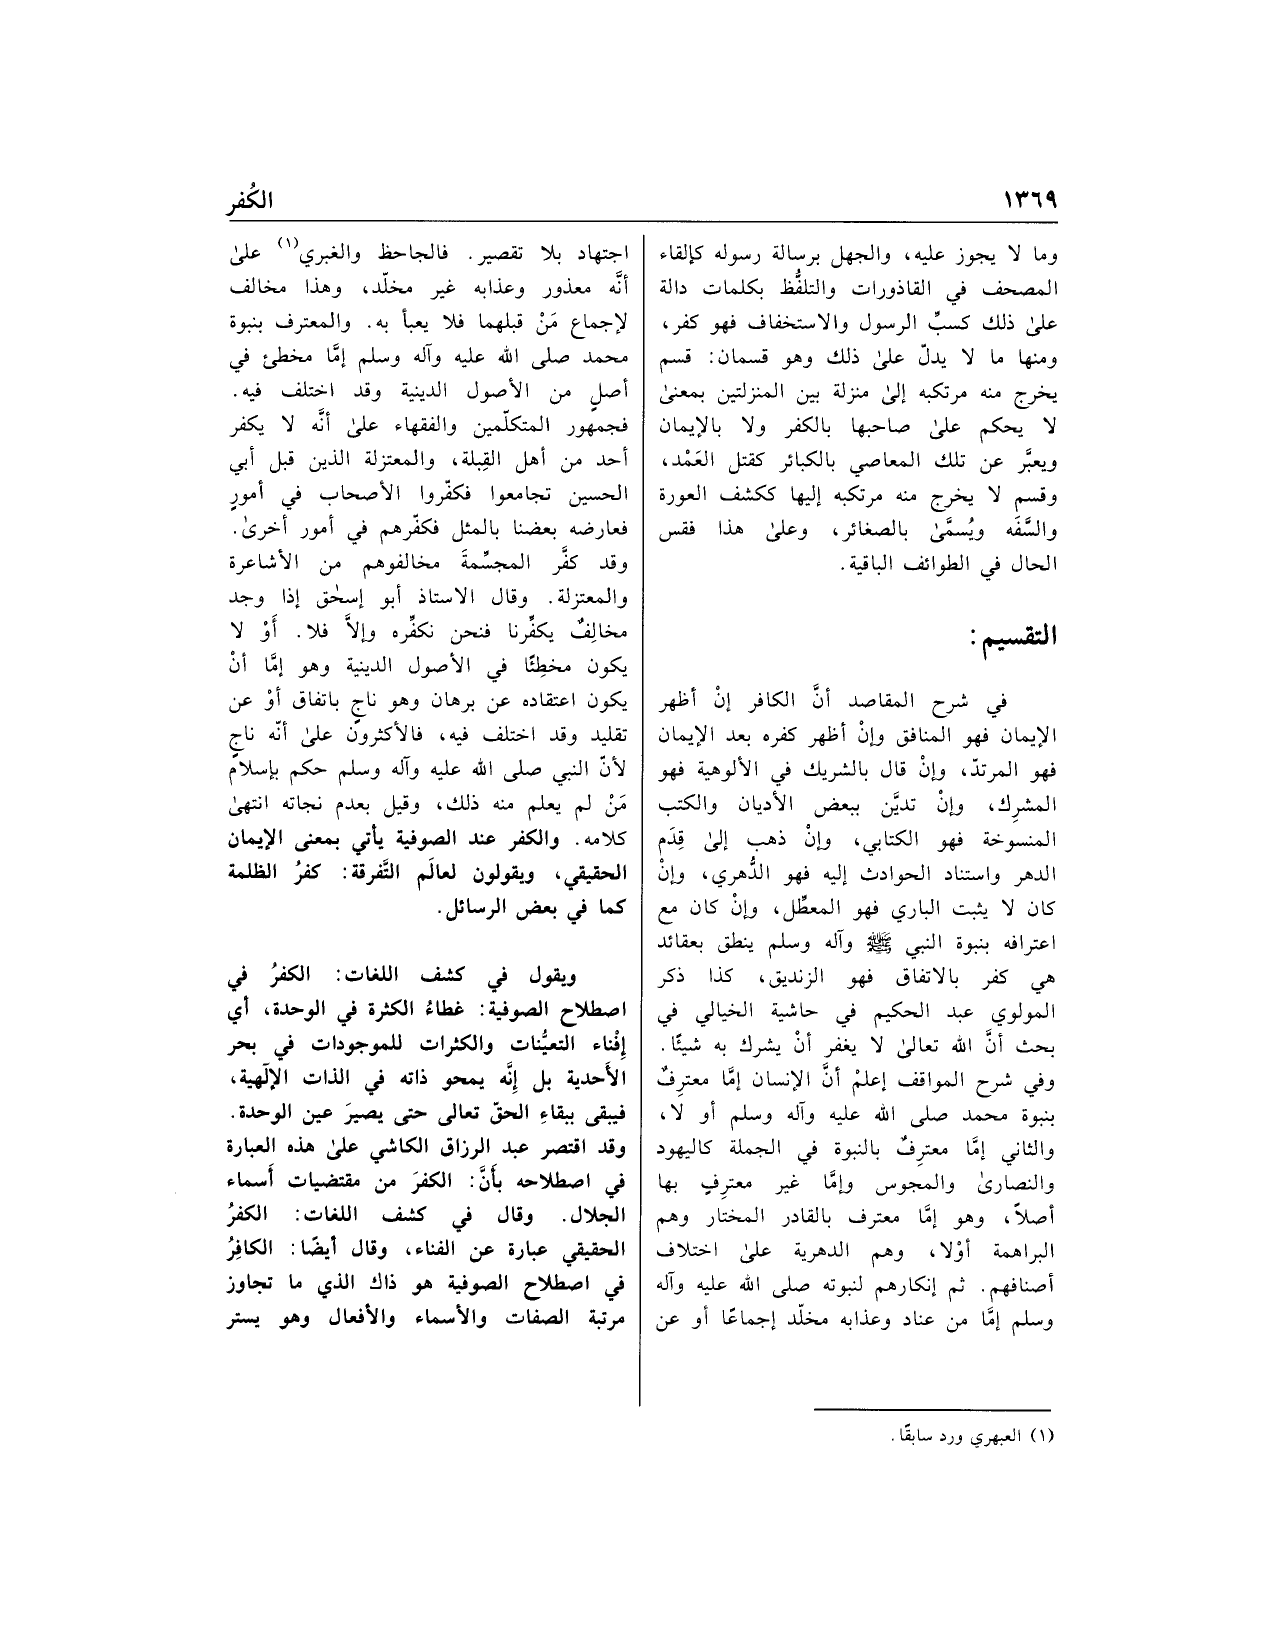 ١٣٦٩
الكُفر
وما لا يجوز عليه، والجهل برسالة رسوله كإلقاء
المصحف في القاذورات والتلفُّظ بكلمات دالة
علىٰ ذلك كسبِّ الرسول والاستخفاف فهو كفر،
ومنها ما لا يدلّ علىٰ ذلك وهو قسمان: قسم
يخرج منه مرتكبه إلىٰ منزلة بين المنزلتين بمعنىٰ
لا يحكم علىٰ صاحبها بالكفر ولا بالإيمان
ويعبَّر عن تلك المعاصي بالكبائر كقتل العَمْد،
وقسم لا يخرج منه مرتكبه إليها ككشف العورة
والسَّفَه ويُسمَّىٰ بالصغائر، وعلىٰ هذا فقس
الحال في الطوائف الباقية.
التقسيم:
في شرح المقاصد أنَّ الكافر إنْ أظهر
الإيمان فهو المنافق وإنْ أظهر كفره بعد الإيمان
فهو المرتدّ، وإنْ قال بالشريك في الألوهية فهو
المشرِك، وإنْ تديَّن ببعض الأديان والكتب
المنسوخة فهو الكتابي، وإنْ ذهب إلىٰ قِدَم
الدهر واستناد الحوادث إليه فهو الدُّهري، وإنْ
كان لا يثبت الباري فهو المعطِّل، وإنْ كان مع
اعترافه بنبوة النبي ﷺ وآله وسلم ينطق بعقائد
هي كفر بالاتفاق فهو الزنديق، كذا ذكر
المولوي عبد الحكيم في حاشية الخيالي في
بحث أنَّ الله تعالىٰ لا يغفر أنْ يشرك به شيئًا.
وفي شرح المواقف إعلمْ أنَّ الإنسان إمَّا معترِفٌ
بنبوة محمد صلى الله عليه وآله وسلم أو لا،
والثاني إمَّا معترِفٌ بالنبوة في الجملة كاليهود
والنصارىٰ والمجوس وإمَّا غير معترِفٍ بها
أصلاً، وهو إمَّا معترف بالقادر المختار وهم
البراهمة أوْلا، وهم الدهرية علىٰ اختلاف
أصنافهم. ثم إنكارهم لنبوته صلى الله عليه وآله
وسلم إمَّا من عناد وعذابه مخلّد إجماعًا أو عن
اجتهاد بلا تقصير. فالجاحظ والغبري(١) علىٰ
أنَّه معذور وعذابه غير مخلّد، وهذا مخالف
لإجماع مَنْ قبلهما فلا يعبأ به. والمعترف بنبوة
محمد صلى الله عليه وآله وسلم إمَّا مخطئ في
أصلٍ من الأصول الدينية وقد اختلف فيه.
فجمهور المتكلّمين والفقهاء علىٰ أنَّه لا يكفر
أحد من أهل القِبلة، والمعتزلة الذين قبل أبي
الحسين تجامعوا فكفّروا الأصحاب في أمورٍ
فعارضه بعضنا بالمثل فكفّرهم في أمور أخرىٰ.
وقد كفَّر المجسِّمةَ مخالفوهم من الأشاعرة
والمعتزلة. وقال الاستاذ أبو إسحٰق إذا وجد
مخالِفٌ يكفِّرنا فنحن نكفِّره وإلاَّ فلا. أَوْ لا
يكون مخطِئًا في الأصول الدينية وهو إمَّا أنْ
يكون اعتقاده عن برهان وهو ناجٍ باتفاق أوْ عن
تقليد وقد اختلف فيه، فالأكثرون علىٰ أنّه ناجٍ
لأنّ النبي صلى الله عليه وآله وسلم حكم بإسلام
مَنْ لم يعلم منه ذلك، وقيل بعدم نجاته انتهىٰ
كلامه. والكفر عند الصوفية يأتي بمعنى الإيمان
الحقيقي، ويقولون لعالَم التَّفرقة: كفرُ الظلمة
كما في بعض الرسائل.
ويقول في كشف اللغات: الكفرُ في
اصطلاح الصوفية: غطاءُ الكثرة في الوحدة، أي
إفْناء التعيُّنات والكثرات للموجودات في بحر
الأَحدية بل إنَّه يمحو ذاته في الذات الإلٓهية،
فيبقى ببقاءِ الحقّ تعالى حتى يصيرَ عين الوحدة.
وقد اقتصر عبد الرزاق الكاشي علىٰ هذه العبارة
في اصطلاحه بأَنَّ: الكفرَ من مقتضيات أَسماء
الجلال. وقال في كشف اللغات: الكفرُ
الحقيقي عبارة عن الفناء، وقال أيضًا: الكافِرُ
في اصطلاح الصوفية هو ذاك الذي ما تجاوز
مرتبة الصفات والأسماء والأفعال وهو يستر
(١) العبهري ورد سابقًا.